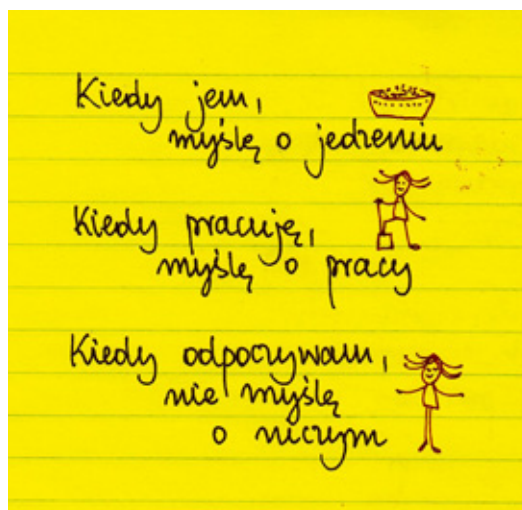 Kiedy jem,
myślę o jedzeniu
Kiedy pracuję,
myślę o pracy
Kiedy odpoczywam,
nie myślę
o niczym